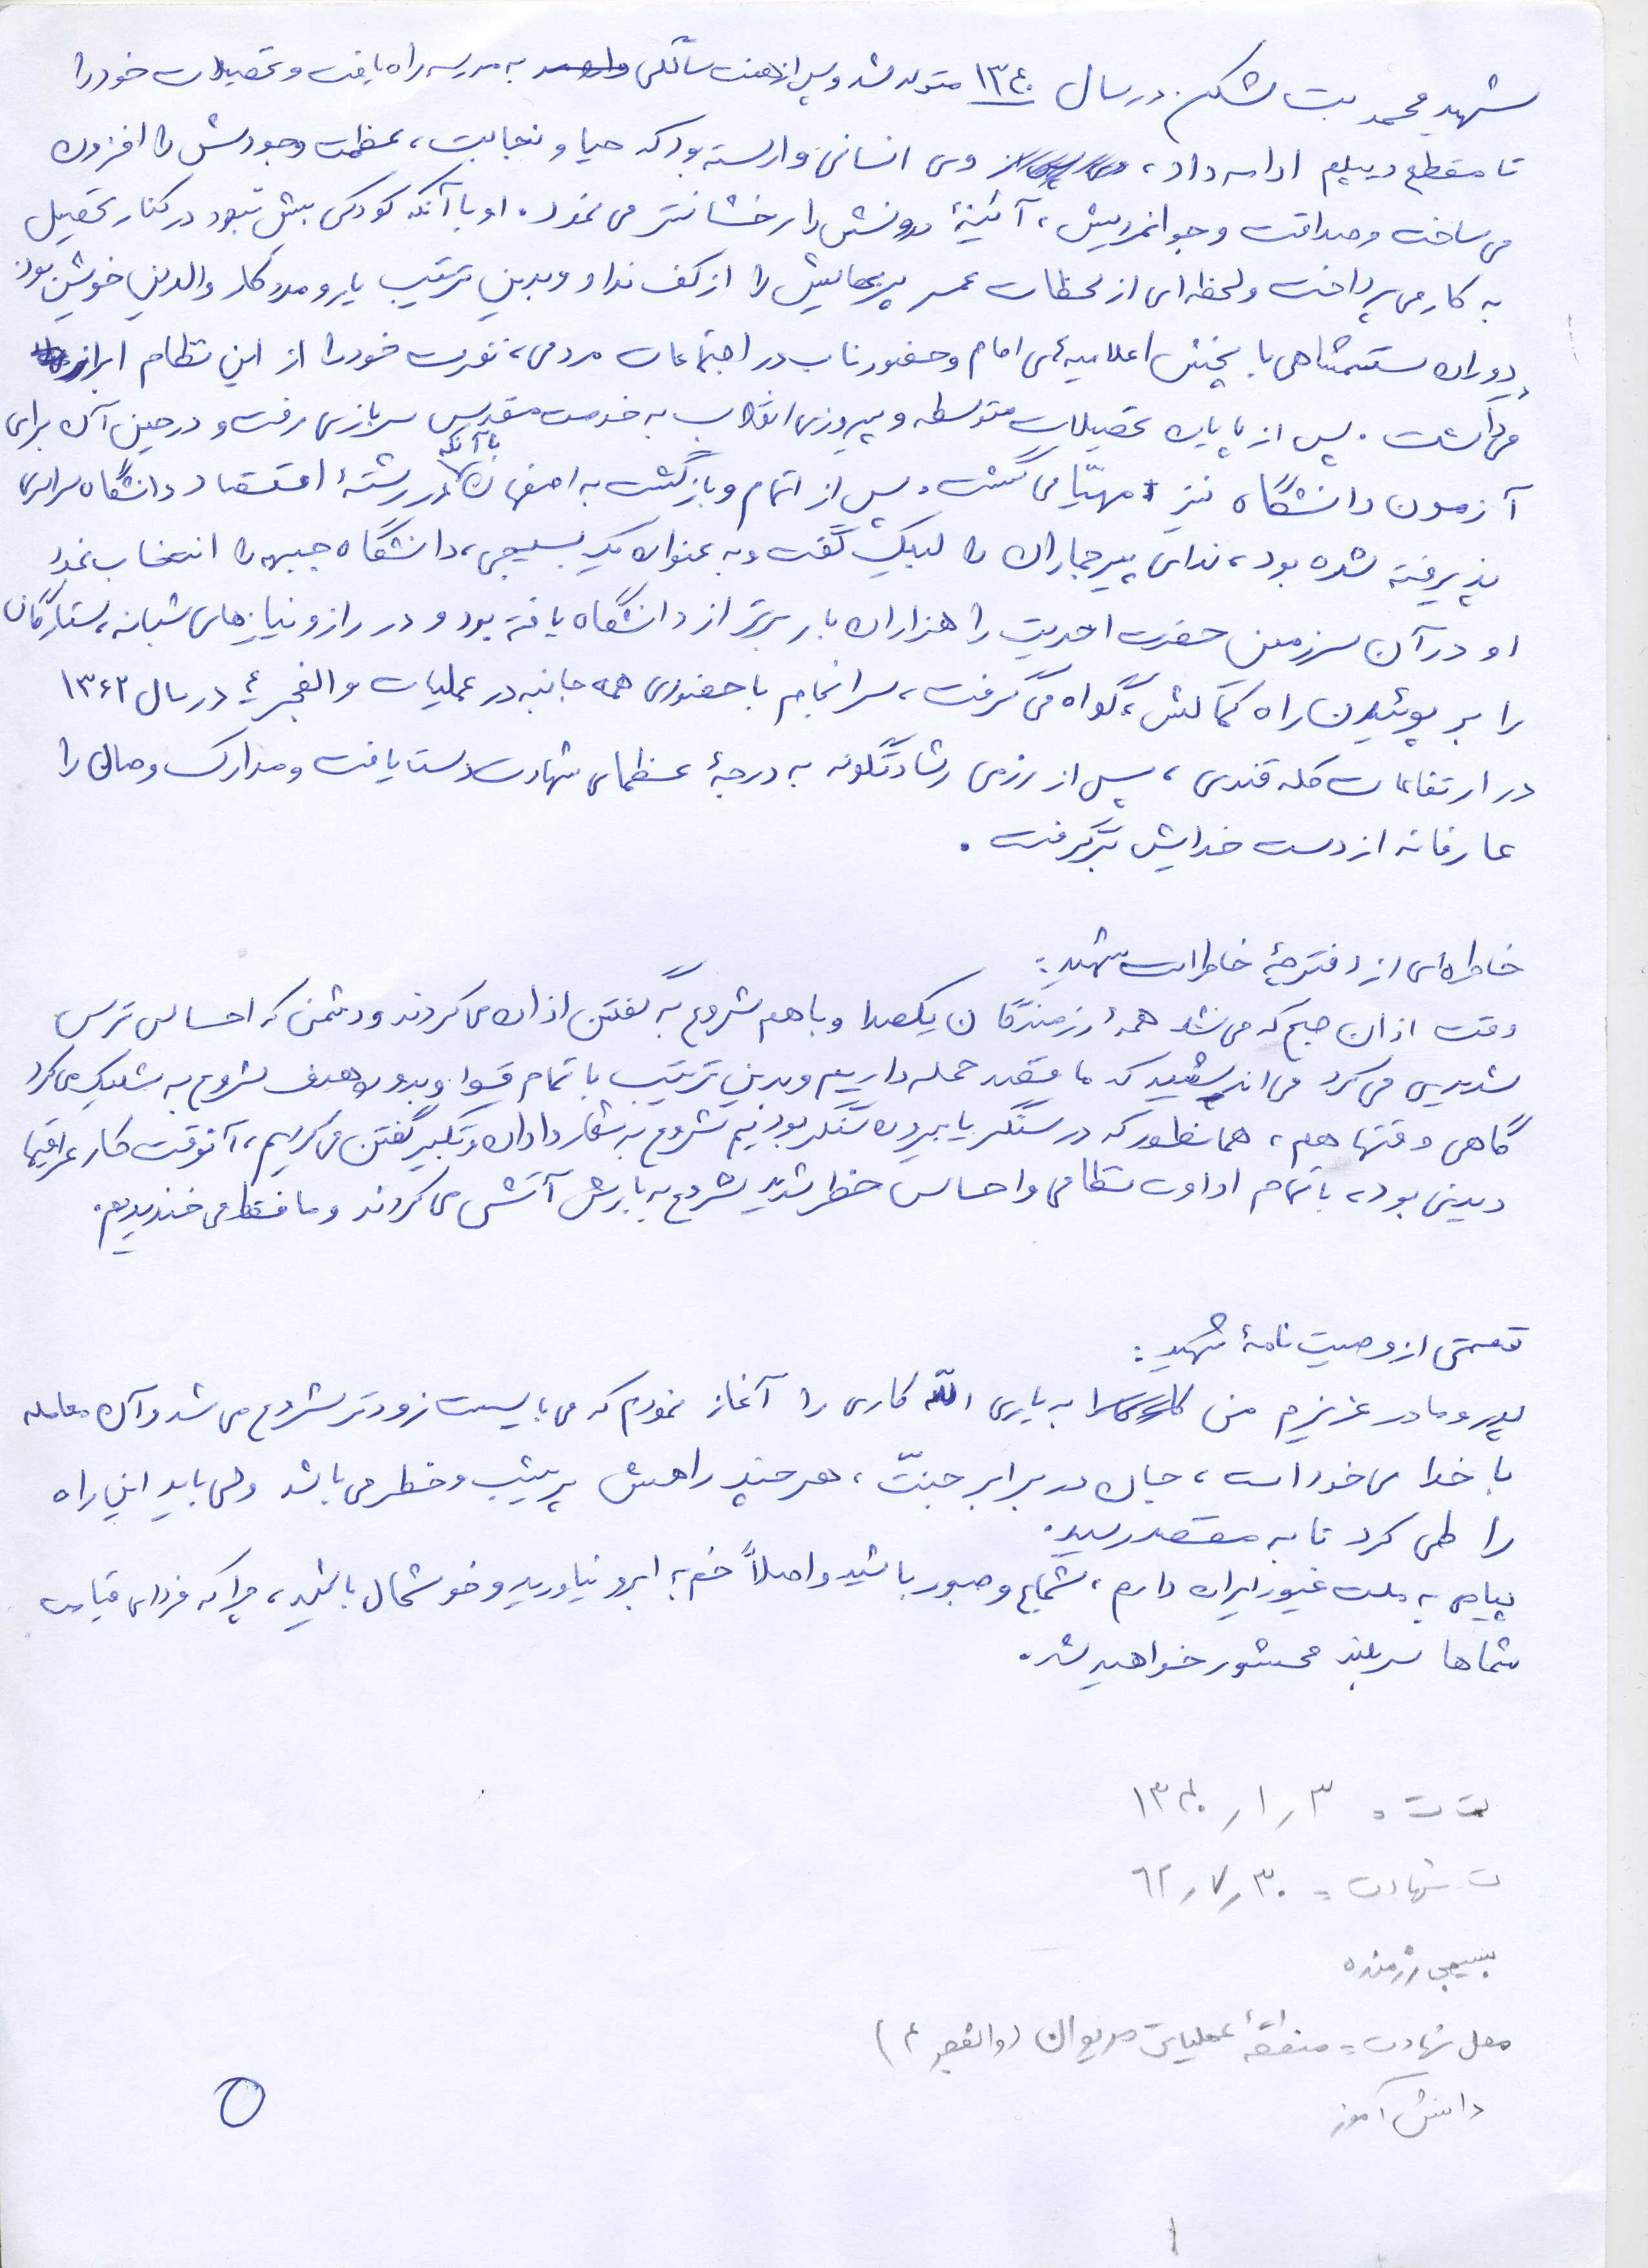 شهید محمد بت شکن در سال ۱۳۴۰ متولد شد و پس از هفت سالگی به مدرسه راه یافت و تحصیلات خود را
تا مقطع دیپلم ادامه داد، وی انسانی وارسته بود که حیا و نجابت، عظمت وجودش را افزون
می ساخت و صداقت و جوانمردیش، آئینهٔ درونش را رخشانتر می نمود. او با آنکه کودکی بیش نبود در کنار تحصیل
به کار می پرداخت و لحظه ای از لحظات عمر پربهایش را از کف نداد و بدین ترتیب یار و مددکار والدین خویش بود.
دوران ستمشاهی با پخش اعلامیه های امام و حضور ناب در اجتماعات مردمی، نفرت خود را از این نظام ابراز
می داشت. پس از پایان تحصیلات متوسطه و پیروزی انقلاب به خدمت مقدس سربازی رفت و در حین آن برای
آزمون دانشگاه نیز مهیّا می گشت. پس از اتمام و بازگشت به اصفهان با آنکه در رشتهٔ اقتصاد دانشگاه سراسری
پذیرفته شده بود، ندای پیر جماران را لبیک گفت و به عنوان یک بسیجی، دانشگاه جبهه را انتخاب نمود
او در آن سرزمین حضرت احدیت را هزاران بار برتر از دانشگاه یافته بود و در راز و نیازهای شبانه، ستارگان
را بر پوئیدن راه کمالش، گواه می گرفت، سرانجام با حضوری همه جانبه در عملیات والفجر ۴ در سال ۱۳۶۲
در ارتفاعات کله قندی، پس از رزمی رشادتگونه به درجهٔ عظمای شهادت دست یافت و مدارک وصال را
عارفانه از دست خدایش برگرفت.
خاطره ای از دفترچهٔ خاطرات شهید:
وقت اذان صبح که می شد همهٔ رزمندگان یکصدا و با هم شروع به گفتن اذان می کردند و دشمن که احساس ترس
شدیدی می کرد می اندیشید که ما قصد حمله داریم و بدین ترتیب با تمام قوا و بدون هدف شروع به شلیک می کرد
گاهی وقتها هم، همانطور که در سنگر یا بیرون سنگر بودیم شروع به شعار دادن و تکبیر گفتن می کردیم، آنوقت کار عراقیها
دیدنی بود، با تمام ادوات نظامی و احساس خطر شدید شروع به بارش آتش می کردند و ما فقط می خندیدیم.
قسمتی از وصیت نامهٔ شهید:
پدر و مادر عزیزم من به یاری الله کاری را آغاز نمودم که می بایست زودتر شروع می شد و آن معامله
با خدای خود است، جان در برابر جنّت، هر چند راهش پر شیب و خطر می باشد ولی باید این راه
را طی کرد تا به مقصد رسید.
پیامی به ملت غیور ایران دارم، شجاع و صبور باشید و اصلاً خم به ابرو نیاورید و خوشحال باشید، چرا که فردای قیامت
شماها سربلند محشور خواهید شد.
ت ت = ۳ر۱ر۱۳۴۰
ت شهادت = ۳۰ر۷ر۶۲
بسیجی رزمنده
محل شهادت = منطقهٔ عملیاتی مریوان (والفجر ۴)
دانش آموز